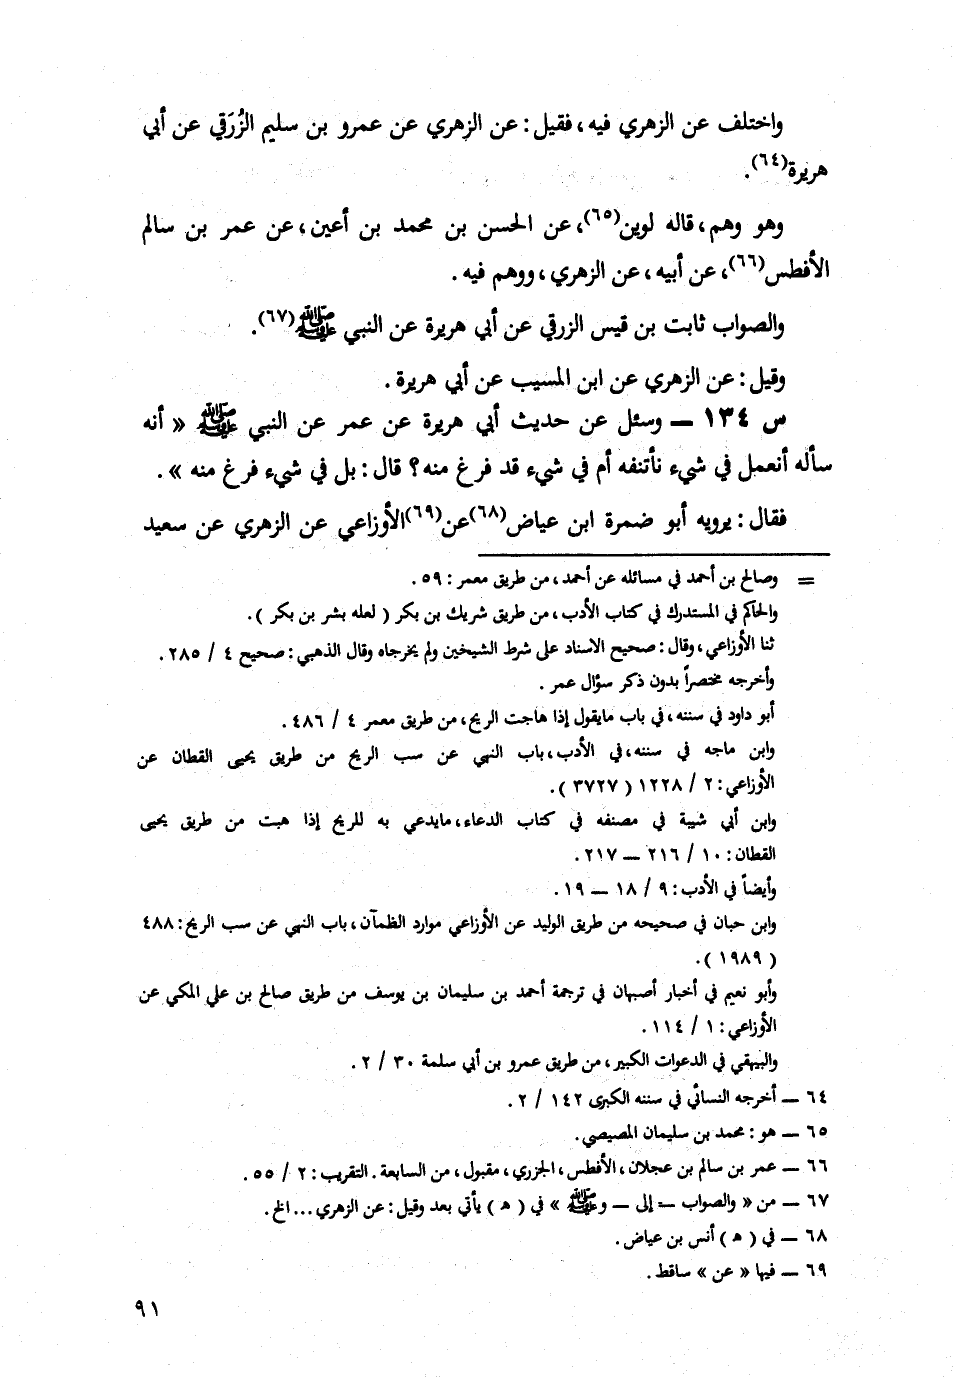 واختلف عن الزهري فيه، فقيل: عن الزهري عن عمرو بن سليم الزُرَقي عن أبي
هريرة(٦٤).
وهو وهم، قاله لوين(٦٥)، عن الحسن بن محمد بن أعين، عن عمر بن سالم
الأفطس(٦٦)، عن أبيه، عن الزهري، ووهم فيه.
والصواب ثابت بن قيس الزرقي عن أبي هريرة عن النبي ﷺ(٦٧).
وقيل: عن الزهري عن ابن المسيب عن أبي هريرة.
س ١٣٤ — وسئل عن حديث أبي هريرة عن عمر عن النبي ﷺ « أنه
سأله أنعمل في شيء نأتنفه أم في شيء قد فرغ منه؟ قال: بل في شيء فرغ منه ».
فقال: يرويه أبو ضمرة ابن عياض(٦٨)عن(٦٩)الأوزاعي عن الزهري عن سعيد
= وصالح بن أحمد في مسائله عن أحمد، من طريق معمر: ٥٩.
والحاكم في المستدرك في كتاب الأدب، من طريق شريك بن بكر ( لعله بشر بن بكر ).
ثنا الأوزاعي، وقال: صحيح الاسناد على شرط الشيخين ولم يخرجاه وقال الذهبي: صحيح ٤ / ٢٨٥.
وأخرجه مختصراً بدون ذكر سؤال عمر.
أبو داود في سننه، في باب مايقول إذا هاجت الريح، من طريق معمر ٤ / ٤٨٦.
وابن ماجه في سننه، في الأدب، باب النهي عن سب الريح من طريق يحيى القطان عن
الأوزاعي: ٢ / ١٢٢٨ ( ٣٧٢٧ ).
وابن أبي شيبة في مصنفه في كتاب الدعاء، مايدعي به للريح إذا هبت من طريق يحيى
القطان: ١٠ / ٢١٦ — ٢١٧.
وأيضاً في الأدب: ٩ / ١٨ — ١٩.
وابن حبان في صحيحه من طريق الوليد عن الأوزاعي موارد الظمآن، باب النهي عن سب الريح: ٤٨٨
( ١٩٨٩ ).
وأبو نعيم في أخبار أصبهان في ترجمة أحمد بن سليمان بن يوسف من طريق صالح بن علي المكي عن
الأوزاعي: ١ / ١١٤.
والبيهقي في الدعوات الكبير، من طريق عمرو بن أبي سلمة ٣٠ / ٢.
٦٤ — أخرجه النسائي في سننه الكبرى ١٤٢ / ٢.
٦٥ — هو: محمد بن سليمان المصيصي.
٦٦ — عمر بن سالم بن عجلان، الأفطس، الجزري، مقبول، من السابعة. التقريب: ٢ / ٥٥.
٦٧ — من « والصواب — إلى — وﷺ » في ( هـ ) يأتي بعد وقيل: عن الزهري ... الخ.
٦٨ — في ( هـ ) أنس بن عياض.
٦٩ — فيها « عن » ساقط.
٩١